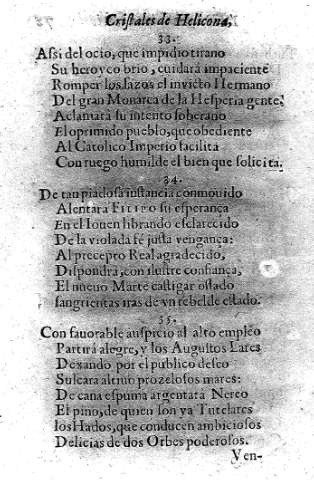 Cristales de Helicona,
33.
Assi del ocio, que impidio tirano
Su heroyco brio, cuidará impaciente
Romper los lazos el invicto Hermano
Del gran Monarca de la Hesperia gente,
Aclamará su intento soberano
El oprimido pueblo, que obediente
Al Catolico Imperio facilita
Con ruego humilde el bien que solicita.
34.
De tan piadosa instancia conmouido
Alentará FILIPO su esperança
En el Iouen librando esclarecido
De la violada fé justa vengança:
Al precepto Real agradecido,
Dispondrá, con ilustre confiança,
El nueuo Marte castigar osado
sangrientas iras de vn rebelde estado.
35.
Con fauorable auspicio al alto empleo
Partirá alegre, y los Augustos Lares
Dexando por el publico deseo
Sulcará altiuo prozelosos mares:
De cana espuma argentará Nereo
El pino, de quien son ya Tutelares
los Hados, que conducen ambiciosos
Delicias de dos Orbes poderosos.
Ven-